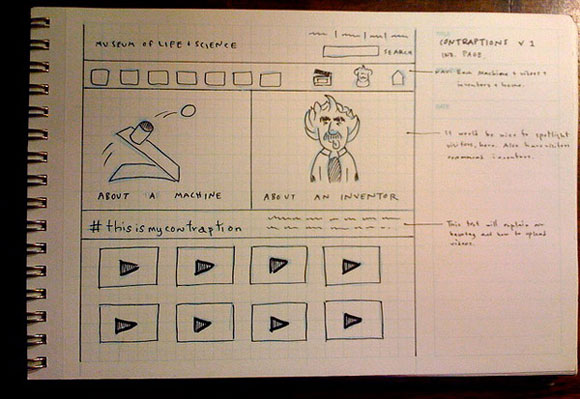 MUSEUM OF LIFE + SCIENCE
SEARCH
ABOUT A MACHINE
ABOUT AN INVENTOR
#thisismycontraption
TITLE
CONTRAPTIONS V 1
PAGE
NAV: Each machine + videos +
inventors + home.
DATE
It would be nice to spotlight
visitors, here. Also have visitors
inventors.
This text will explain our
hashtag and how to upload
videos.